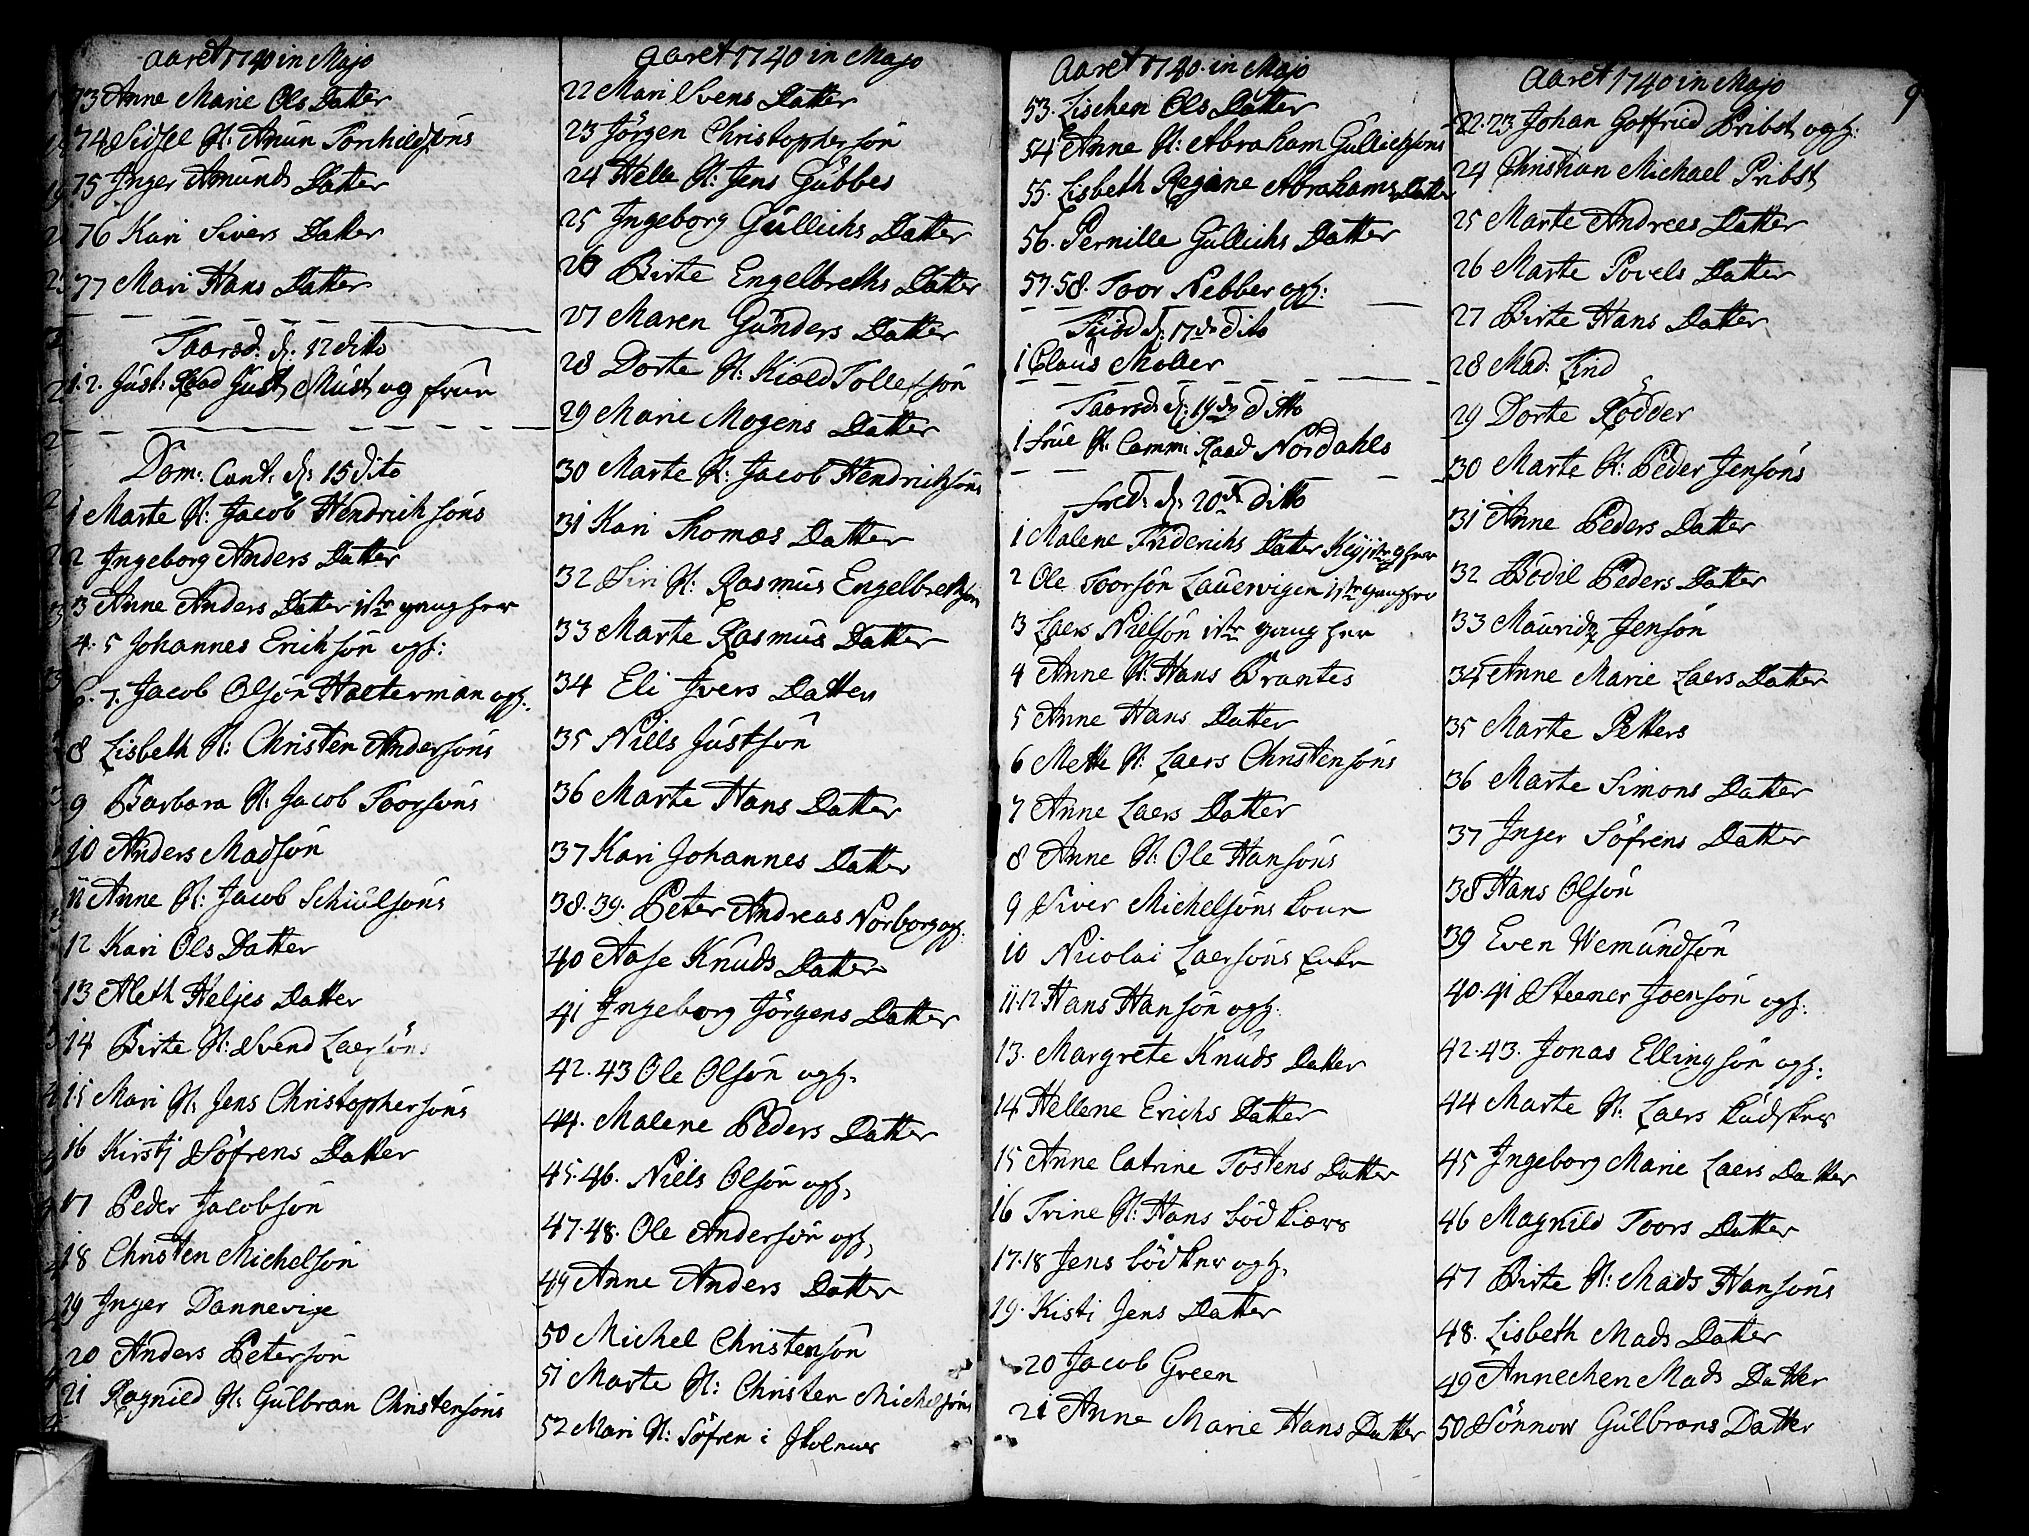 Aaret 1740 in Majo
73 Anne Marie Ols Datter
74 Sidsel H: Amun Torchildsöns
75 Inger Amunds Datter
76 Kari Sivers Datter
77 Mari Hans Datter
Taarsd. d. 12 ditto
1.2. Just: Raad Just Must og frue
Dom: Cant. d. 15 dito
1 Marte H: Jacob Hendrichsöns
2 Ingeborg Anders Datter
3 Anne Anders Datter 1ste gang her
4. 5 Johannes Erichsön ogh:
6. 7. Jacob Olsön Holterman ogh:
8 Lisbeth H: Christen Andersöns
9 Barbara H: Jacob Toorsöns
10 Anders Madsön
11 Anne H: Jacob Schiulsöns
12 Kari Ols Datter
13 Aleth Heljes Datter
14 Birte H: Svend Laersöns
15 Mari H: Jens Christophersöns
16 Kirsti Söfrens Datter
17 Peder Jacobsön
18 Christen Michelsön
19 Inger Dannevige
20 Anders Petersön
21 Ragnild H: Gulbran Christensöns
Aaret 1740 in Majo
22 Mari Svens Datter
23 Jörgen Christophersön
24 Helle H: Jens Gubbes
25 Ingeborg Gullichs Datter
26 Birte Engelbreths Datter
27 Maren Gunders Datter
28 Dorte H: Kield Tollefsön
29 Marie Mogens Datter
30 Marte H: Jacob Hendrichsöns
31 Kari Thomas Datter
32 Siri H: Rasmus Engelbrethsön
33 Marte Rasmus Datter
34 Eli Ivers Datter
35 Niels Justsön
36 Marte Hans Datter
37 Kari Johannes Datter
38. 39. Peter Andreas Norborg ogh:
40 Aase Knuds Datter
41 Ingeborg Jörgens Datter
42. 43 Ole Olsön ogh.
44. Malene Peders Datter
45. 46. Niels Olsön ogh.
47. 48. Ole Andersön ogh.
49 Anne Anders Datter
50 Michel Christensön
51 Marte H: Christen Michelsöns
52 Mari H: Söfren i
Aaret 1740. in Majo
53. Lischen Ols Datter
54 Anne H: Abraham Gullichsöns
55. Lisbeth Regine Abrahams Datter
56. Pernille Gullichs Datter
57. 58. Toor Nebber ogh:
Tiisd. d. 17de dito
1 Claus Moller
Taarsd. d. 19de ditto
1 frue H: Camm: Raad Nordahls
fred. d. 20de ditto
1 Malene Friderichs Datter 1ste g her
2 Ole Toorsön Lauervigen 1ste gang her
3 Laers Nielsön 1ste gang her
4 Anne H: Hans Brantes
5 Anne Hans Datter
6 Mette H: Laers Christensöns
7 Anne Laers Datter
8 Anne H: Ole Hansöns
9 Siver Michelsöns kone
10 Nicolai Laersöns Enke
11. 12 Hans Hansön ogh.
13. Margrete Knuds Datter
14 Hellene Erichs Datter
15 Anne Catrine Tostens Datter
16 Trine H: Hans bödkiers
17. 18 Jens bödker ogh.
19. Kisti Jens Datter
20 Jacob Green
21 Anne Marie Hans Datter
Aaret 1740 in Majo
9
22. 23 Johan Gotfried Pribst ogh:
24 Christian Michael Pribst
25 Marte Andrees Datter
26 Marte Povels Datter
27 Birte Hans Datter
28 Mad. Lind
29 Dorte Rödder
30 Marte H: Peder Jensöns
31 Anne Peders Datter
32 Bodil Peders Datter
33 Mauridz Jensön
34 Anne Marie Laers Datter
35 Marte Petters
36 Marte Simons Datter
37 Inger Söfrens Datter
38 Hans Olsön
39 Even Wemundsön
40. 41 Steener Joensön ogh:
42. 43. Jonas Ellingsön ogh:
44 Marte H: Laers
45 Ingeborg Marie Laers Datter
46 Magnild Toors Datter
47 Birte H: Mads Hansöns
48. Lisbeth Mads Datter
49 Annechen Mads Datter
50 Sönnow Gulbrans Datter